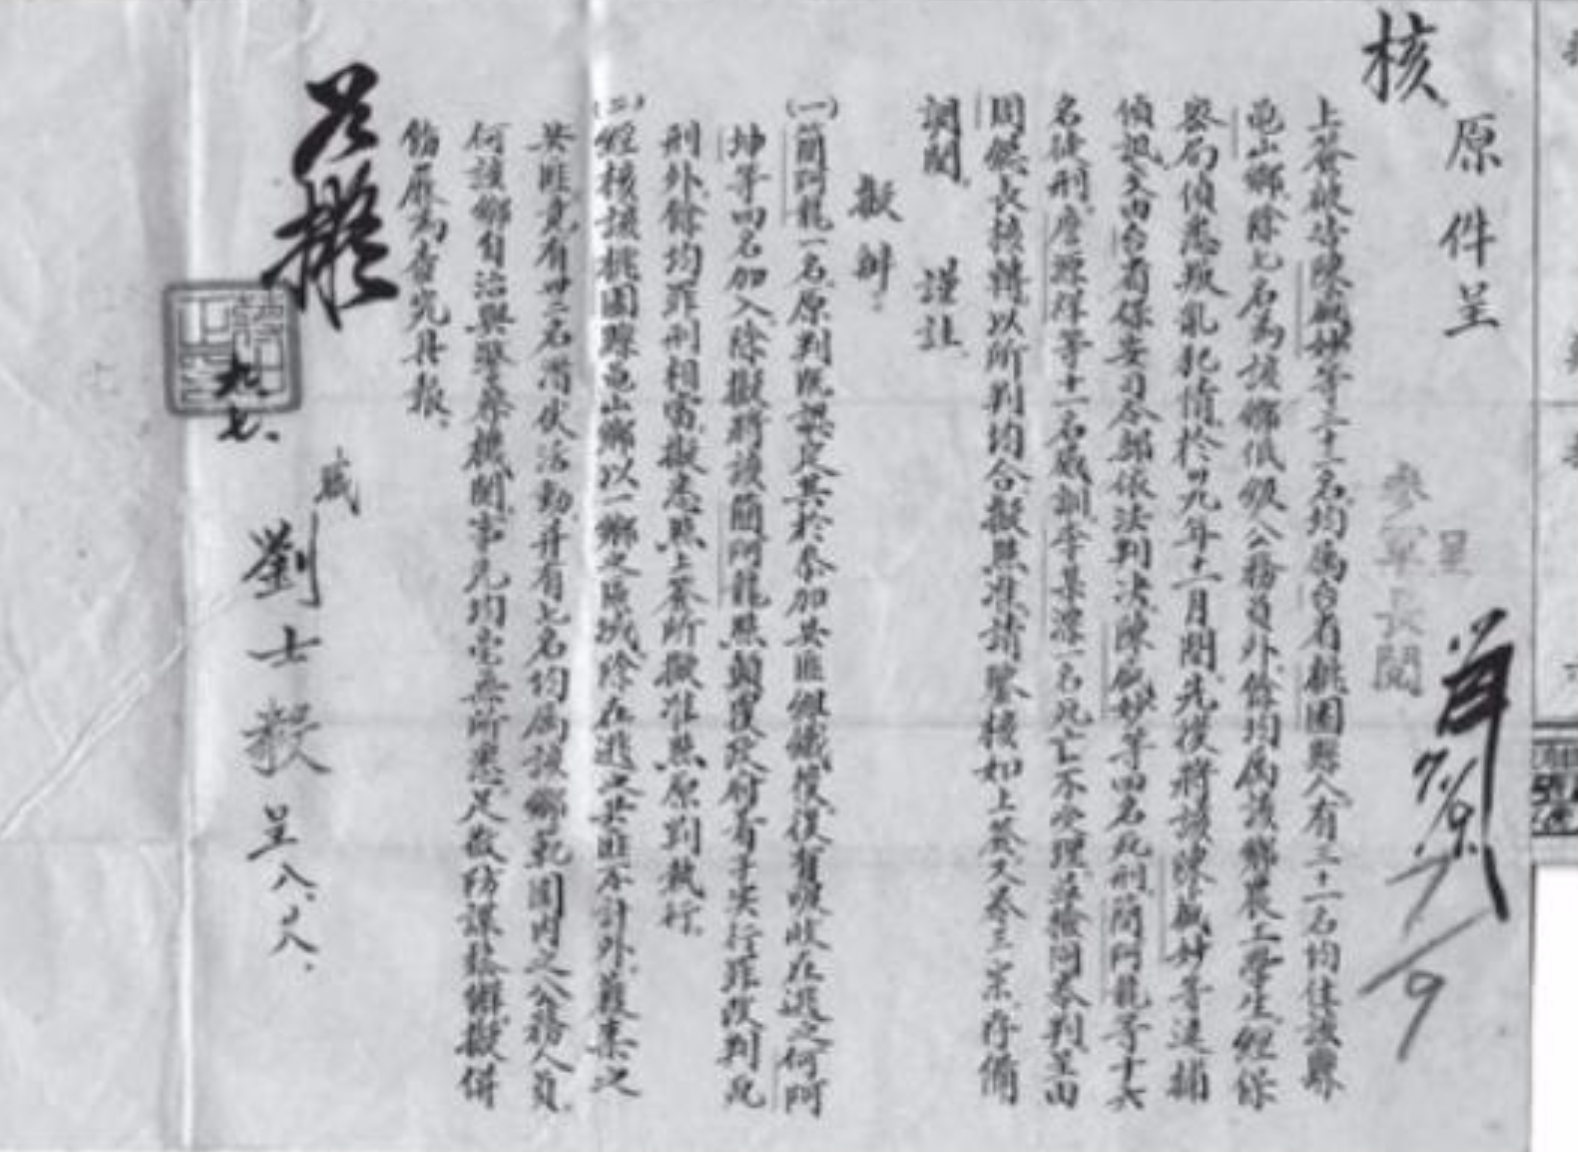 原件呈
核
呈
參軍長閱
上簽被告陳盛妙等三十二名均屬台省桃園縣人有三十一名均住該縣
龜山鄉除七名為該鄉低級公務員外餘均屬該鄉農工學生經保
密局偵悉叛亂犯情於卅九年十一月間先後將該陳盛妙等逮捕
偵訊交由台省保安司令部依法判決陳盛妙等四名死刑簡阿龍等十六
名徒刑詹源得等十一名感訓李某漂一名死亡不受理並檢同卷判呈由
周總長核轉以所判均合擬照准請鑒核如上簽又卷三宗存備
調閱 謹註
擬辦
(一)簡阿龍一名原判既認定其於參加共匪組織後復有吸收在逃之何阿
坤等四名加入除擬將該簡阿龍照顛覆政府着手實行罪改判死
刑外餘均罪刑相當擬悉照上簽所擬准照原判裁行
(二)經核該桃園縣龜山鄉以一鄉之區域除在逃之共匪不計外獲案之
共匪竟有卅二名潛伏活動并有七名均屬該鄉範圍內之公務人員
何該鄉自治與警察機關事先均毫無所悉足徵防諜鬆懈擬併
飭層為查究具報
如擬
九七
職
劉士毅呈八、八